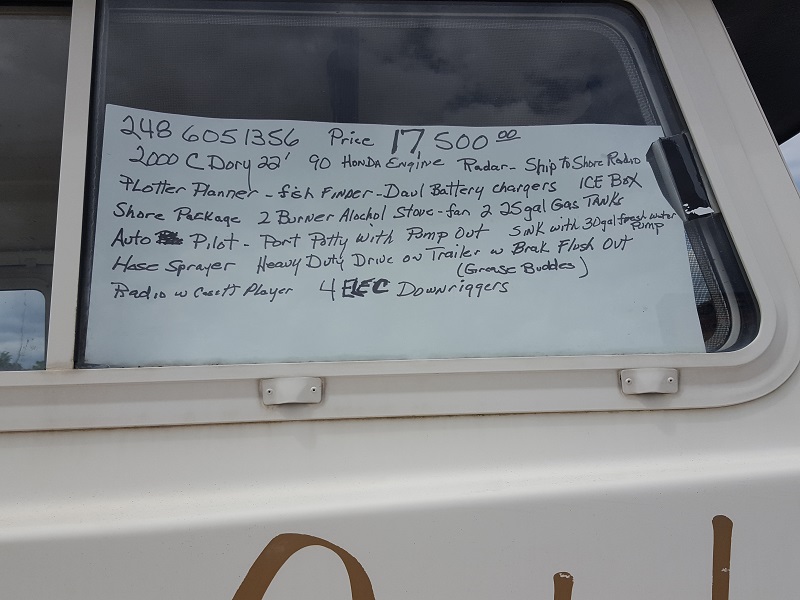 248 605 1356 Price 17,500 00
2000 C Dory 22' 90 HONDA Engine Radar - Ship to Shore Radio
PLotter Planner - fish FINDER - Daul Battery chargers ICE Box
Shore Package 2 Burner Alochol Stove - fan 2 25gal Gas TANKS
Auto Pilot - Port Potty with Pump Out SINK with 30gal fresh water Pump
Hose Sprayer Heavy Duty Drive on Trailer w Brak Flush Out
(Grease Buddes)
Radio w Casett Player 4 ELEC Downriggers